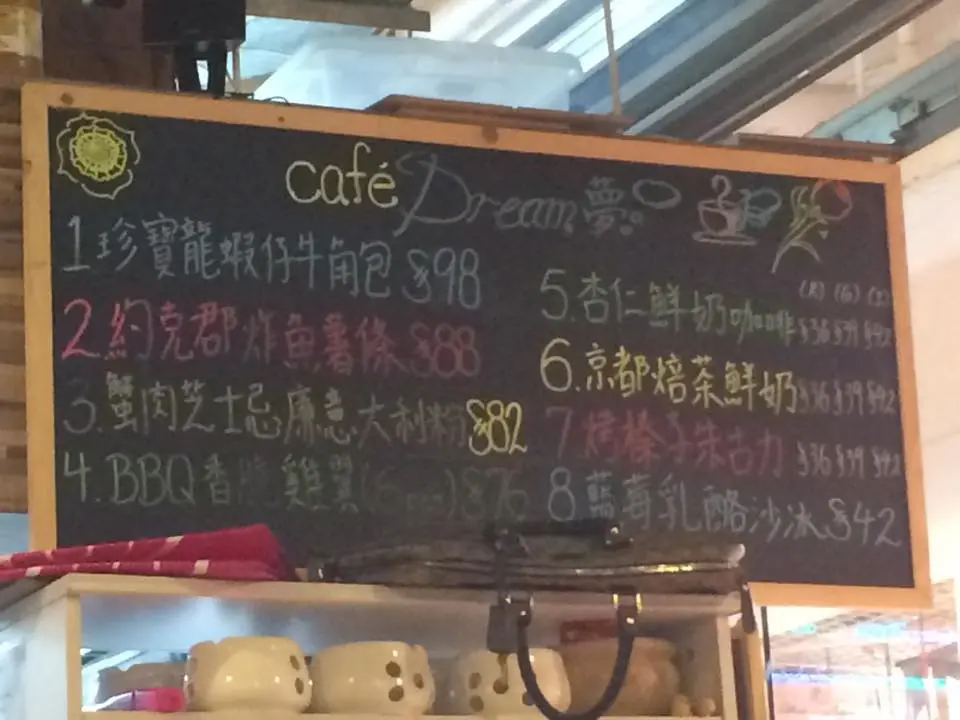 café Dream 夢
1 珍寶龍蝦仔牛角包 $98
2. 約克郡炸魚薯條 $88
3. 蟹肉芝士忌廉意大利粉 $82
4. BBQ香脆雞翼(6pcs) $76
5. 杏仁鮮奶咖啡 $36 $39 $42
6. 京都焙茶鮮奶 $36 $39 $42
7 烤榛子朱古力 $36 $39 $42
8 藍莓乳酪沙冰 $42